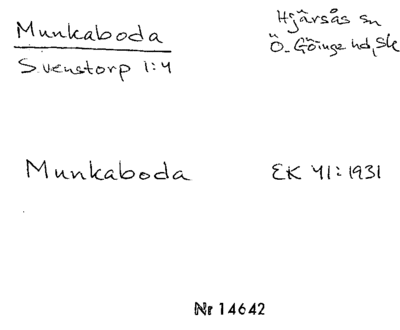 Munkaboda
Svenstorp 1:4
Hjärsås sn
Ö. Göinge hd, Sk
Munkaboda
EK 41:1931
Nr 14642